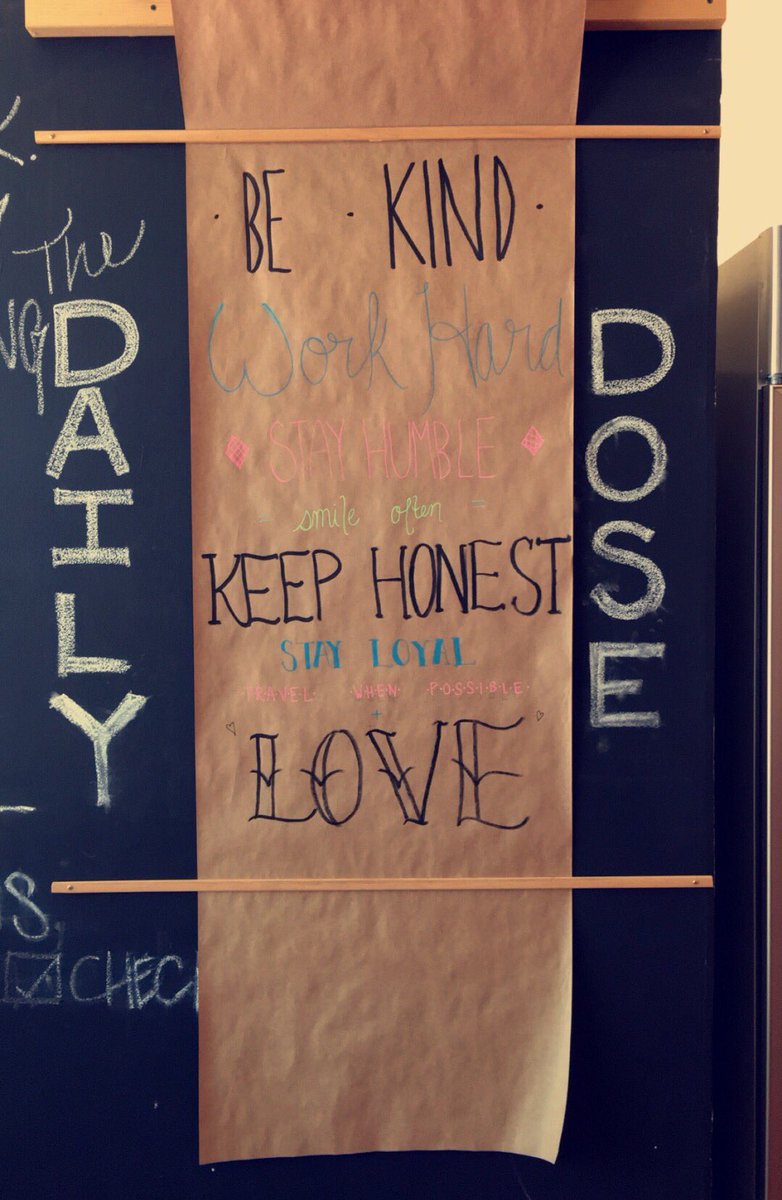 The
DAILY
· BE · KIND ·
Work Hard
STAY HUMBLE
= smile often =
KEEP HONEST
STAY LOYAL
·TRAVEL· WHEN· P·O·S·S·I·B·L·E·
+
LOVE
DOSE